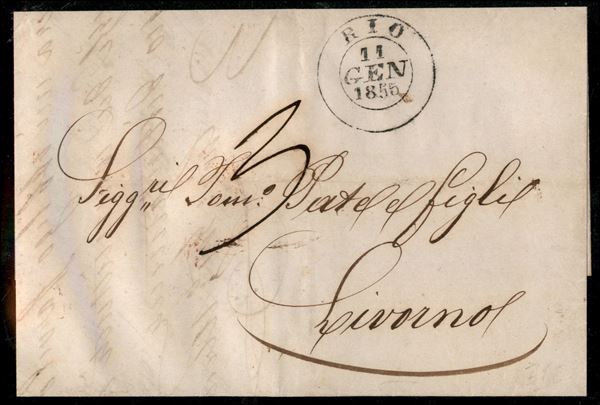 RIO
11
GEN
1855
3
Sigg.ri Tom.o Pate e figli
Livorno